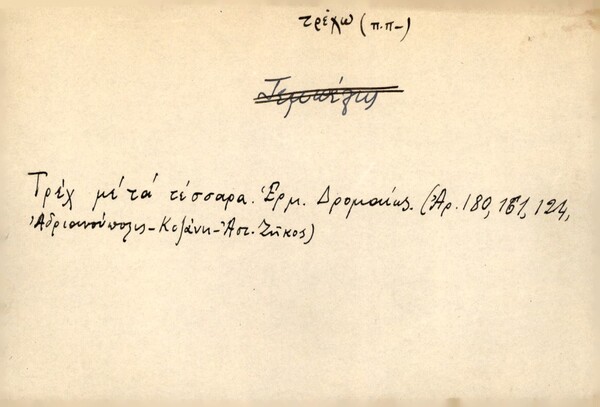 τρέχω (π.π-)
Τρέχ μέ τά τέσσαρα. Ἑρμ. Δρομαίως. (Ἀρ. 180, 161, 124,
Ἀδριανούπολις-Κοζάνη-Ἀστ. Ζῆκος)